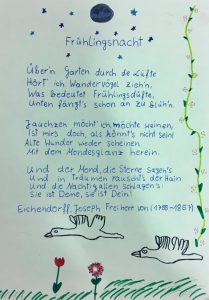 Frühlingsnacht
Über'n Garten durch die Lüfte
Hört ich Wandervögel zieh'n,
Was bedeutet Frühlingsdüfte,
Unten fängt's schon an zu blüh'n.
Jauchzen möcht' ich, möchte weinen,
Ist mir's doch, als könnt's nicht sein!
Alte Wunder wieder scheinen
Mit dem Mondesglanz herein.
Und der Mond, die Sterne sagen's
Und in Träumen rauscht's der Hain
Und die Nachtigallen schlagen's:
Sie ist Deine, sie ist Dein!
Eichendorff, Joseph Freiherr von (1788-1857)